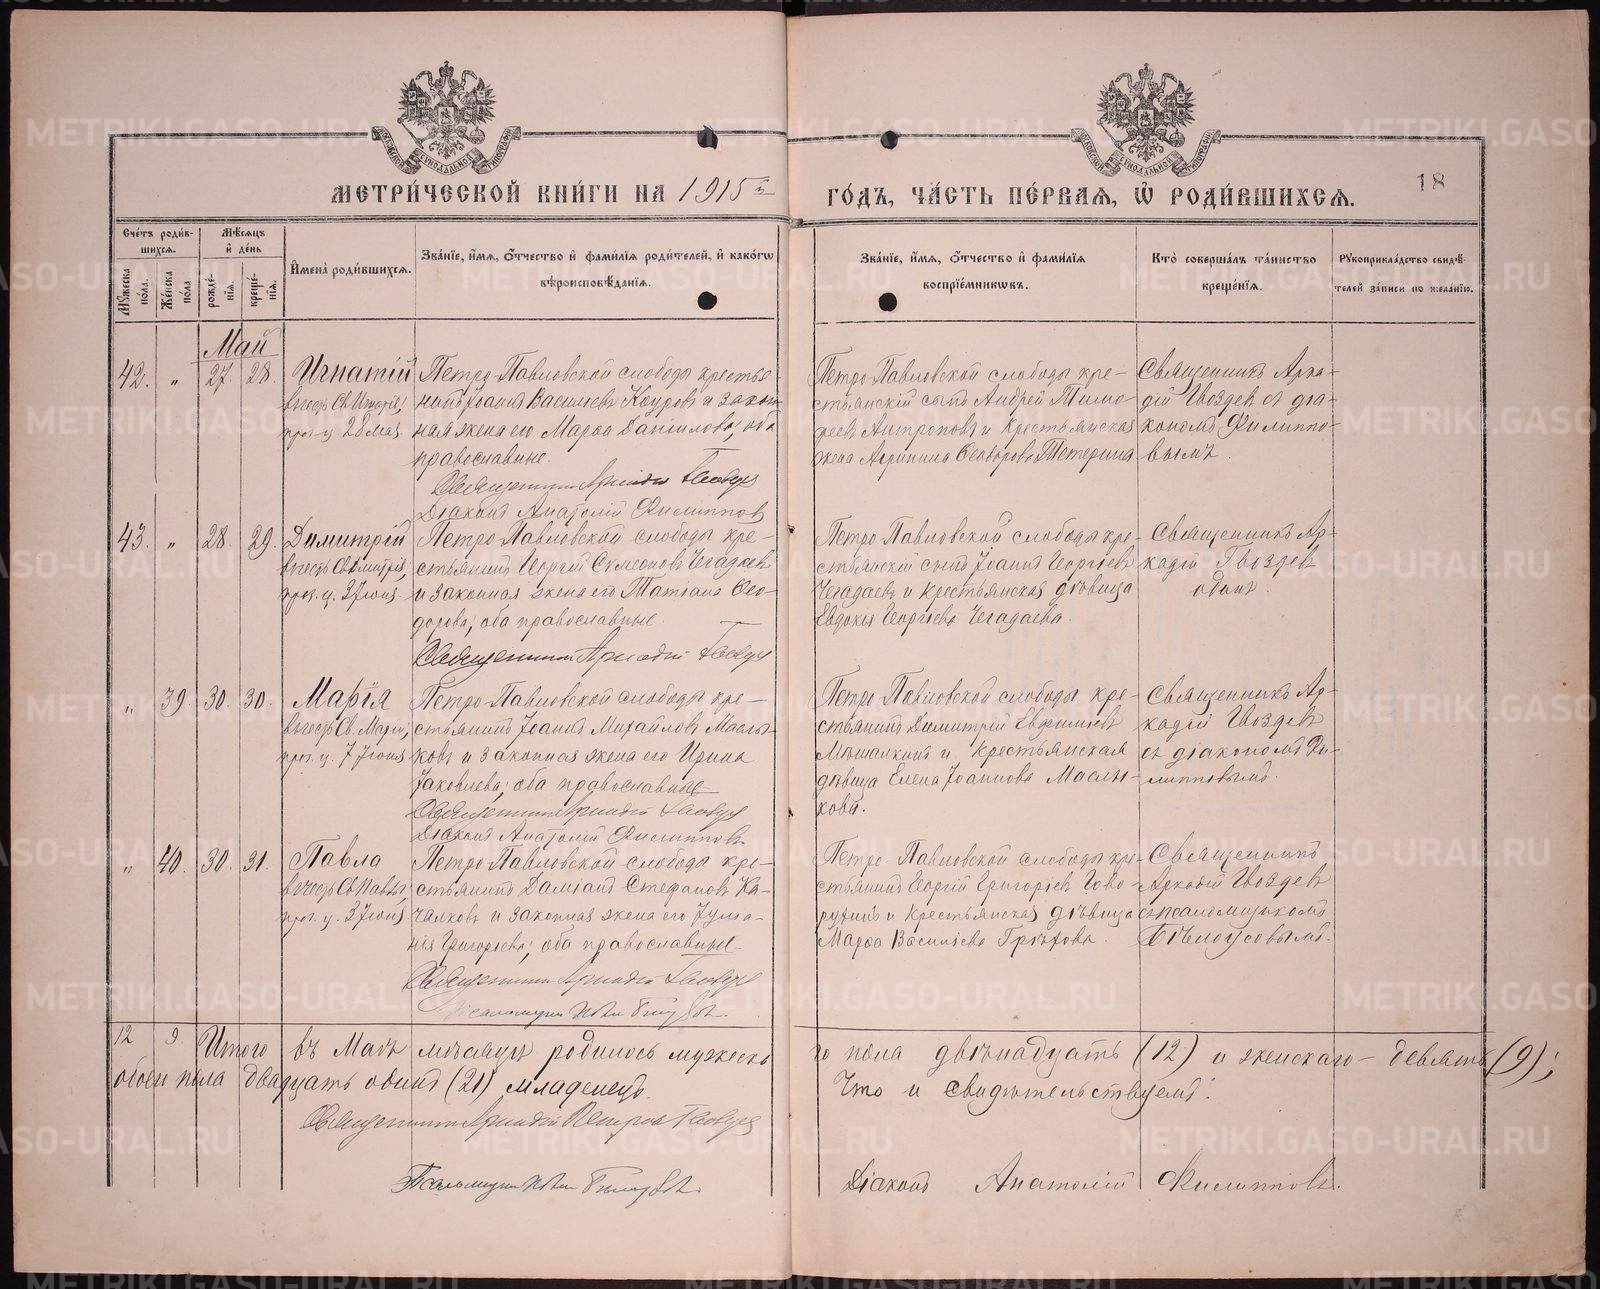 МЕТРИ́ЧЕСКОЙ КНИ́ГИ НА 1915й ГО́ДЪ, ЧА́СТЬ ПЕ́РВАЯ, Ѡ РОДИ́ВШИХСЯ.
18
Сче́тъ роди́в-
шихся.
Мѣ́сяцъ
и҆ де́нь
Му́жеска
по́ла.
Же́нска
по́ла.
рожде́-
нїя.
креще́-
нїя.
И҆мена̀ роди́вшихся.
Зва́нїе, и҆́мя, ѻ҆́тчество и҆ фами́лїя роди́телей, и҆ како́гѡ
вѣроисповѣ́данїя.
Зва́нїе, и҆́мя, ѻ҆́тчество и҆ фами́лїя
воспрїе́мникѡвъ.
Кто̀ соверша́лъ та́инство
креще́нїя.
Рꙋкоприкла́дство свидѣ́-
телей за́писи по жела́нїю.
Май
42. " 27. 28. Игнатій
въ честь Св. Игнатія,
праз. ц. 28 мая.
Петро-Павловской слободы крестья-
нинъ Іоаннъ Васильевъ Коуровъ и закон-
ная жена его Марѳа Даниилова, оба
православные.
Священникъ Аркадій Гвоздев
Діаконъ Анатолій Филиппов
Петро-Павловской слободы кре-
стьянскій сынъ Андрей Тимо-
феевъ Антроповъ и крестьянская
жена Агрипина Ѳеодорова Тетерина
Священникъ Арка-
дій Гвоздев съ діа-
кономъ Филиппо-
вымъ.
43. " 28. 29. Димитрій
въ честь Св. Димитрія,
праз. ц. 3 Іюня.
Петро-Павловской слободы кре-
стьянинъ Георгій Сѵмеоновъ Чегадаев
и законная жена его Татіана Ѳео-
дорова, оба православные.
Священникъ Аркадій Гвоздев
Петро-Павловской слободы кре-
стьянскій сынъ Іоаннъ Георгіевъ
Чегадаевъ и крестьянская дѣвица
Евдокія Георгіева Чегадаева.
Священникъ Ар-
кадій Гвоздев
одинъ.
" 39. 30. 30. Марія
въ честь Св. Маріи,
праз. ц. 7 Іюня
Петро-Павловской слободы кре-
стьянинъ Іоаннъ Михайловъ Маслы-
ковъ и законная жена его Ирина
Іаковлева, оба православные
Священникъ Аркадій Гвоздев
Діаконъ Анатолій Филипповъ
Петро-Павловской слободы кре-
стьянинъ Димитрій
и крестьянская
дѣвица Елена Іоаннова Маслы-
кова.
Священникъ Ар-
кадій Гвоздев
съ діакономъ Фи-
липповымъ.
" 40. 30. 31. Павла
въ честь Св. Павлы,
праз. ц. 3 Іюня
Петро-Павловской слободы кре-
стьянинъ Даміанъ Стефановъ Ка-
чалковъ и законная жена его Іуліа-
нія Григорьева, оба православные
Священникъ Аркадій Гвоздев
Псаломщикъ
Петро-Павловской слободы кре-
стьянинъ Георгій Григоріевъ Гово-
рухинъ и крестьянская дѣвица
Марѳа Васильева Грѣхова.
Священникъ
Аркадій Гвоздев
съ псаломщикомъ
Бѣлоусовымъ.
12 9 Итого въ Маѣ мѣсяцѣ родилось мужеска-
го пола двѣнадцать (12) и женскаго – девять (9);
обоего пола двадцать одинъ (21) младенецъ.
Что и свидѣтельствуемъ:
Священникъ Аркадій Петровъ Гвоздев
Псаломщикъ
Діаконъ Анатолій Филипповъ.
METRIKI.GASO-URAL.RU